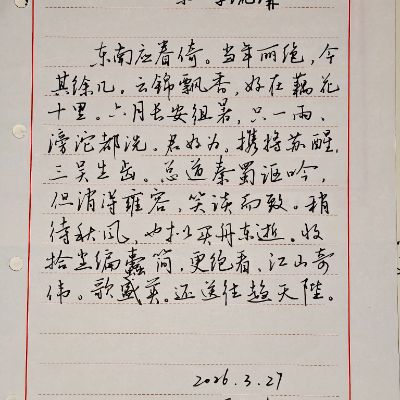 东南应眷倚。当年丽绝,今
其余几。云锦飘香,好在藕花
十里。六月长安组暑,只一雨、
滂沱都洗。君好为。携将苏醒,
三吴生齿。总道秦蜀讴吟,
但消得雍容,笑谈而致。稍
待秋风,也拟买舟东逝。收
拾尘编蠹简,更绝看、江山奇
伟。歌盛美。还送住趋天陛。
2026.3.27